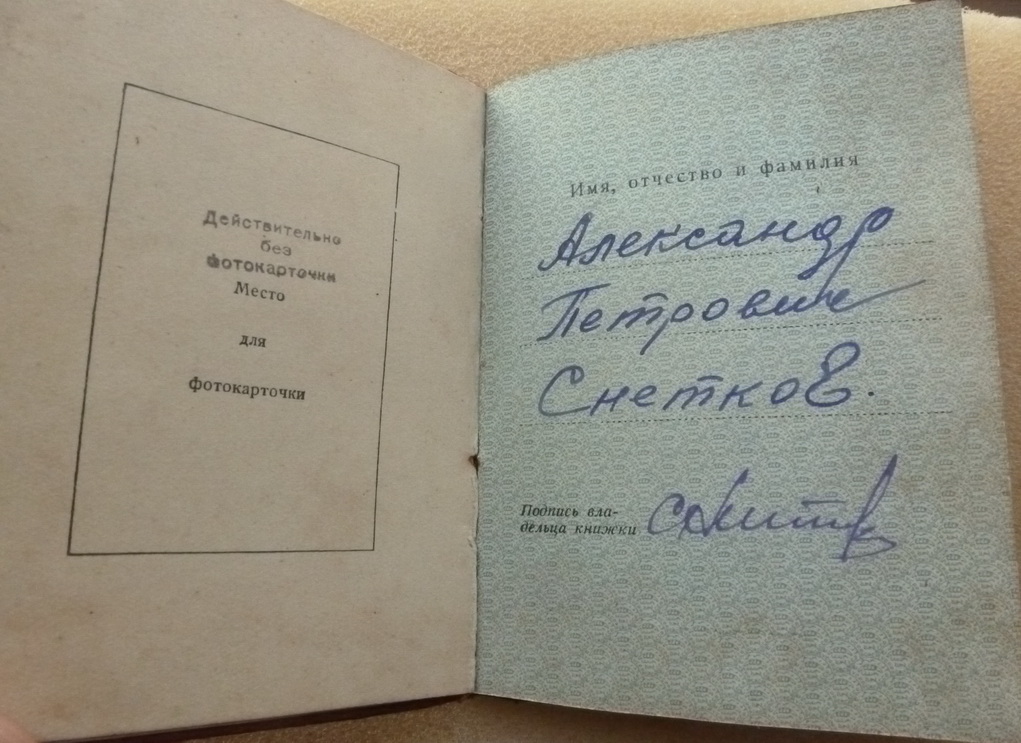 Действительно
без
фотокарточки
Место
для
фотокарточки
Имя, отчество и фамилия
Александр
Петрович
Снетков.
Подпись вла-
дельца книжки